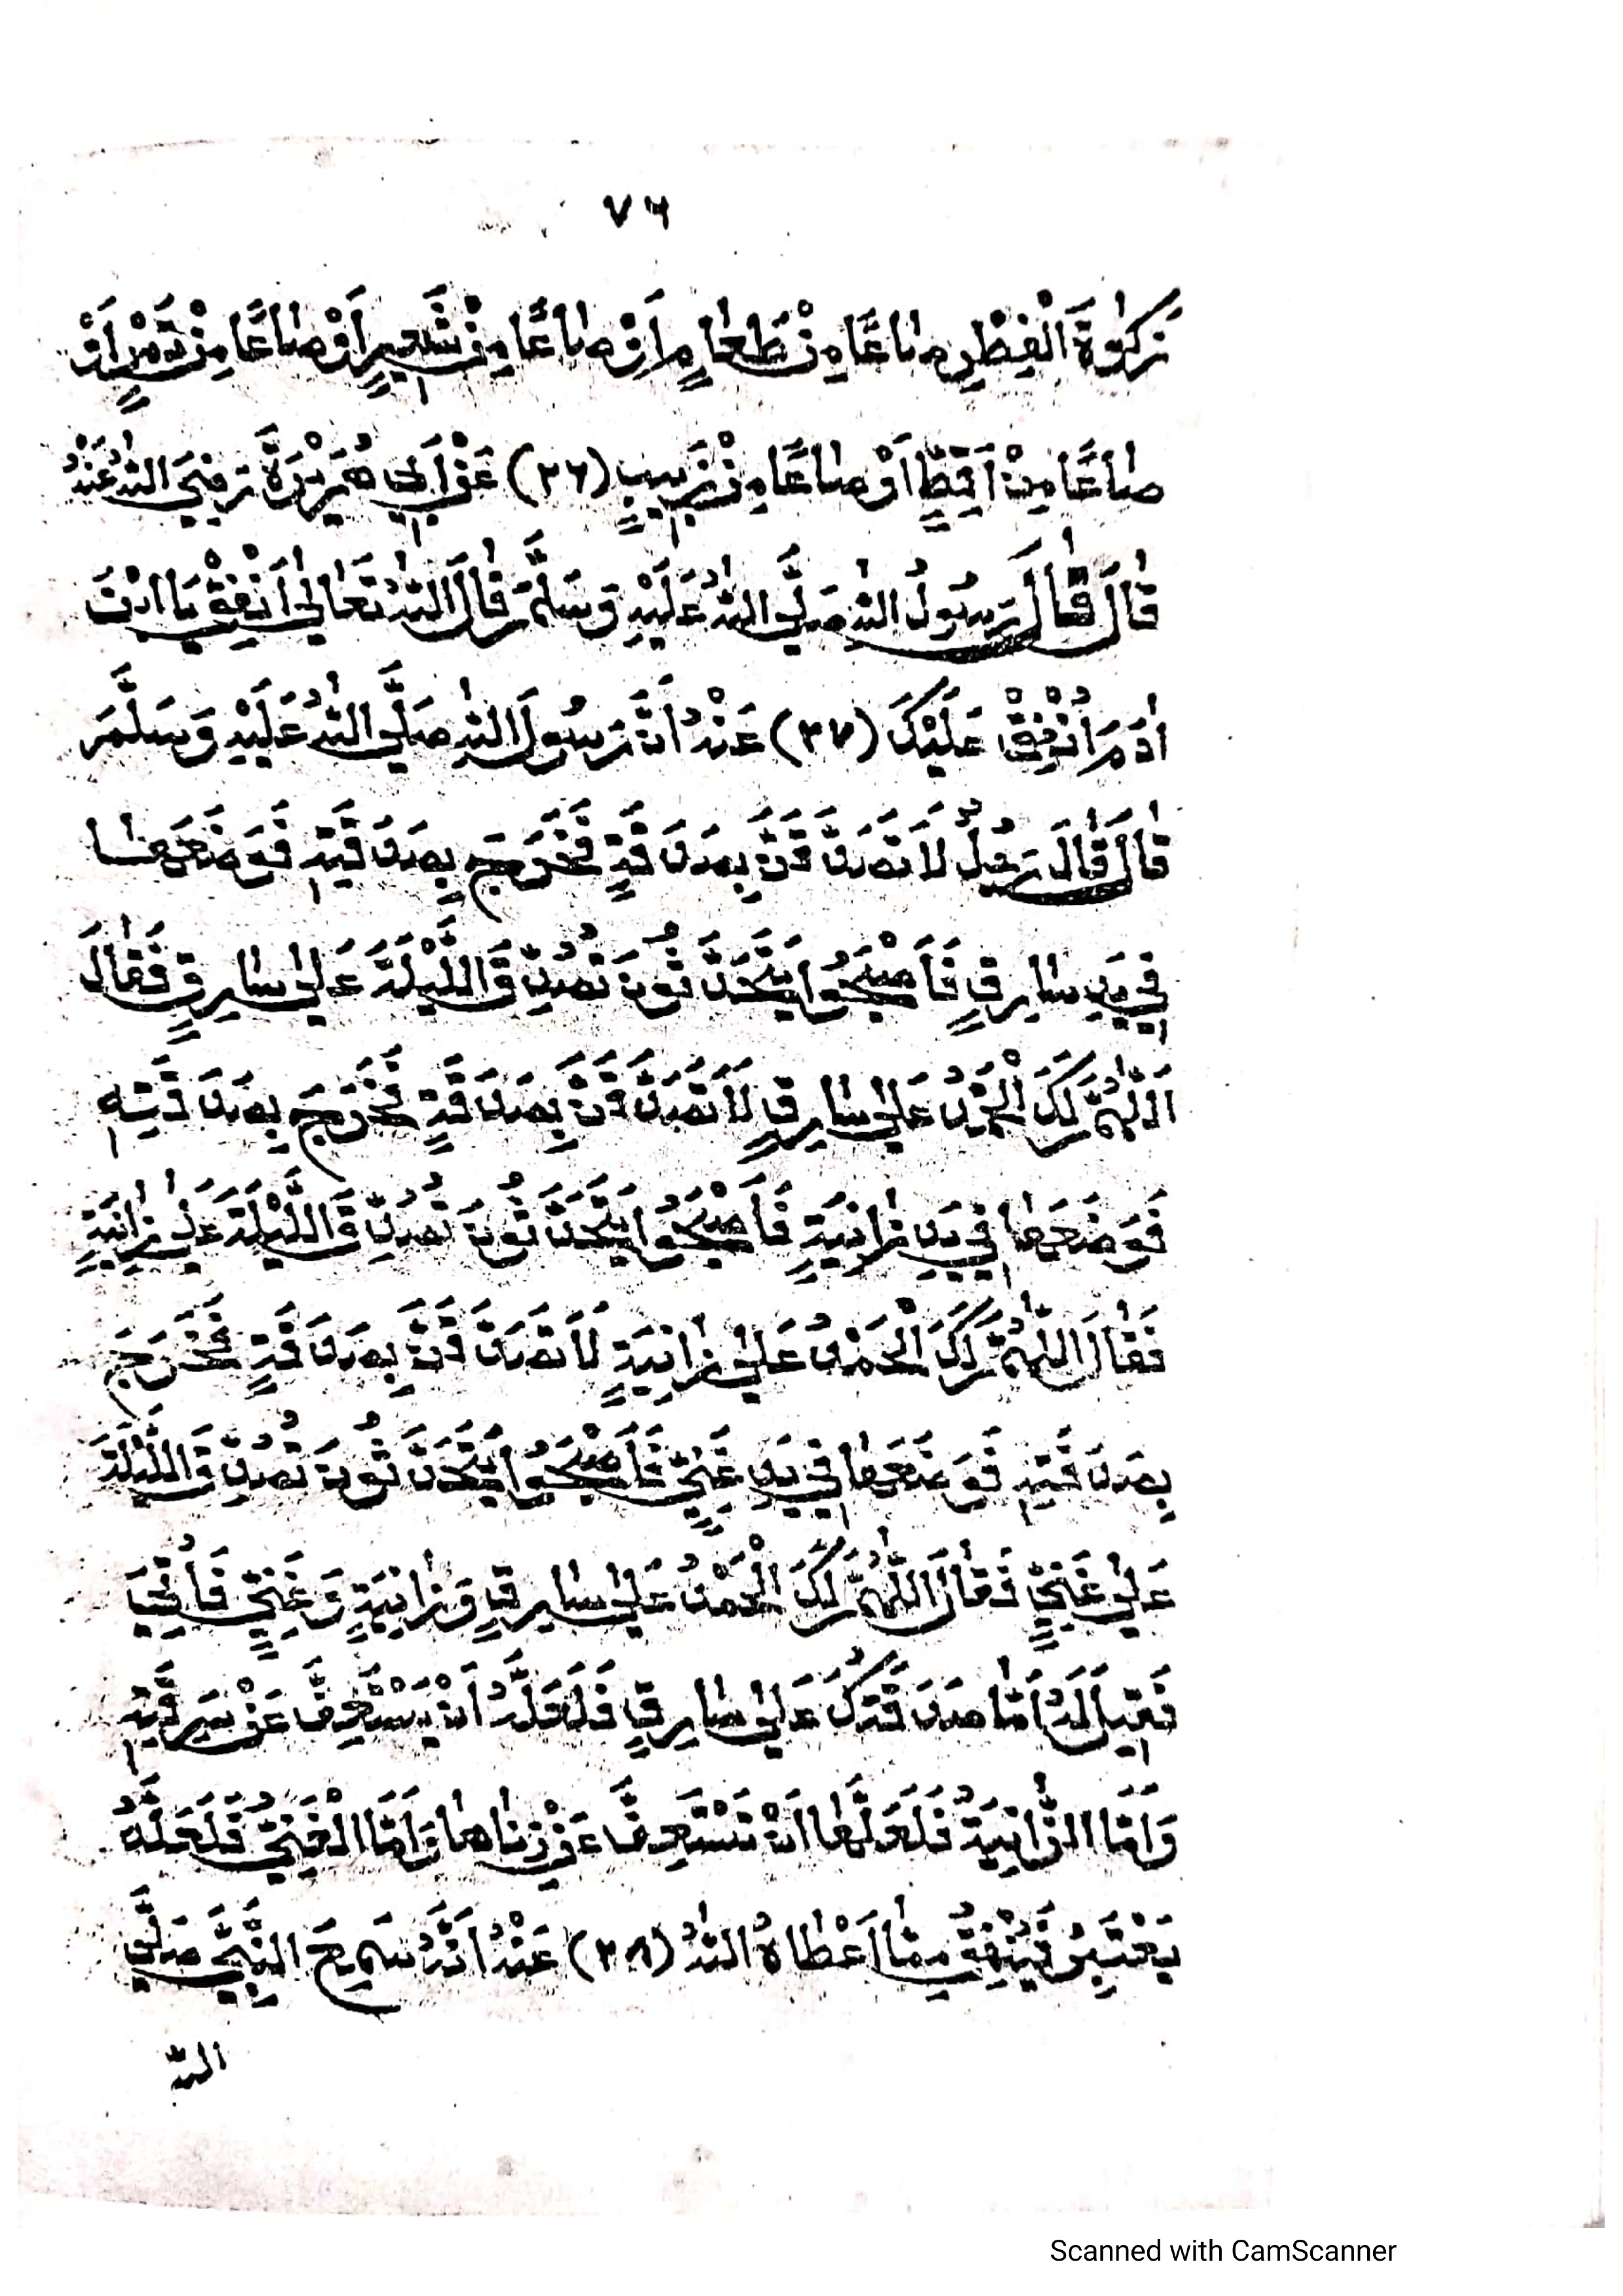 ٧٦
زَكٰوةَ الْفِطْرِ صَاعًا مِنْ طَعَامٍ اَوْ صَاعًا مِنْ شَعِيرٍ اَوْ صَاعًا مِنْ تَمْرٍ اَوْ
صَاعًا مِنْ اَقِطٍ اَوْ صَاعًا مِنْ زَبِيبٍ (٣٦) عَنْ اَبِي هُرَيْرَةَ رَضِيَ اللّٰهُ عَنْهُ
قَالَ قَالَ رَسُولُ اللّٰهِ صَلَّي اللّٰهُ عَلَيْهِ وَسَلَّمَ قَالَ اللّٰهُ تَعَالٰي اَنْفِقْ يَا ابْنَ
اٰدَمَ اُنْفِقْ عَلَيْكَ (٣٧) عَنْهُ اَنَّ رَسُولَ اللّٰهِ صَلَّي اللّٰهُ عَلَيْهِ وَسَلَّمَ
قَالَ قَالَ رَجُلٌ لَاَتَصَدَّقَنَّ بِصَدَقَةٍ فَخَرَجَ بِصَدَقَتِهِ فَوَضَعَهَا
فِي يَدِ سَارِقٍ فَاَصْبَحُوا يَتَحَدَّثُونَ تُصُدِّقَ اللَّيْلَةَ عَلٰي سَارِقٍ فَقَالَ
اَللّٰهُمَّ لَكَ الْحَمْدُ عَلٰي سَارِقٍ لَاَتَصَدَّقَنَّ بِصَدَقَةٍ فَخَرَجَ بِصَدَقَتِهِ
فَوَضَعَهَا فِي يَدِ زَانِيَةٍ فَاَصْبَحُوا يَتَحَدَّثُونَ تُصُدِّقَ اللَّيْلَةَ عَلٰي زَانِيَةٍ
فَقَالَ اللّٰهُمَّ لَكَ الْحَمْدُ عَلٰي زَانِيَةٍ لَاَتَصَدَّقَنَّ بِصَدَقَةٍ فَخَرَجَ
بِصَدَقَتِهِ فَوَضَعَهَا فِي يَدِ غَنِيٍّ فَاَصْبَحُوا يَتَحَدَّثُونَ تُصُدِّقَ اللَّيْلَةَ
عَلٰي غَنِيٍّ فَقَالَ اللّٰهُمَّ لَكَ الْحَمْدُ عَلٰي سَارِقٍ وَزَانِيَةٍ وَغَنِيٍّ فَاُتِيَ
فَقِيلَ لَهُ اَمَّا صَدَقَتُكَ عَلٰي سَارِقٍ فَلَعَلَّهُ اَنْ يَسْتَعِفَّ عَنْ سَرِقَتِهِ
وَاَمَّا الزَّانِيَةُ فَلَعَلَّهَا اَنْ تَسْتَعِفَّ عَنْ زِنَاهَا وَاَمَّا الْغَنِيُّ فَلَعَلَّهُ
يَعْتَبِرُ فَيُنْفِقُ مِمَّا اَعْطَاهُ اللّٰهُ (٣٨) عَنْهُ اَنَّهُ سَمِعَ النَّبِيَّ صَلَّي
اللّٰه
Scanned with CamScanner